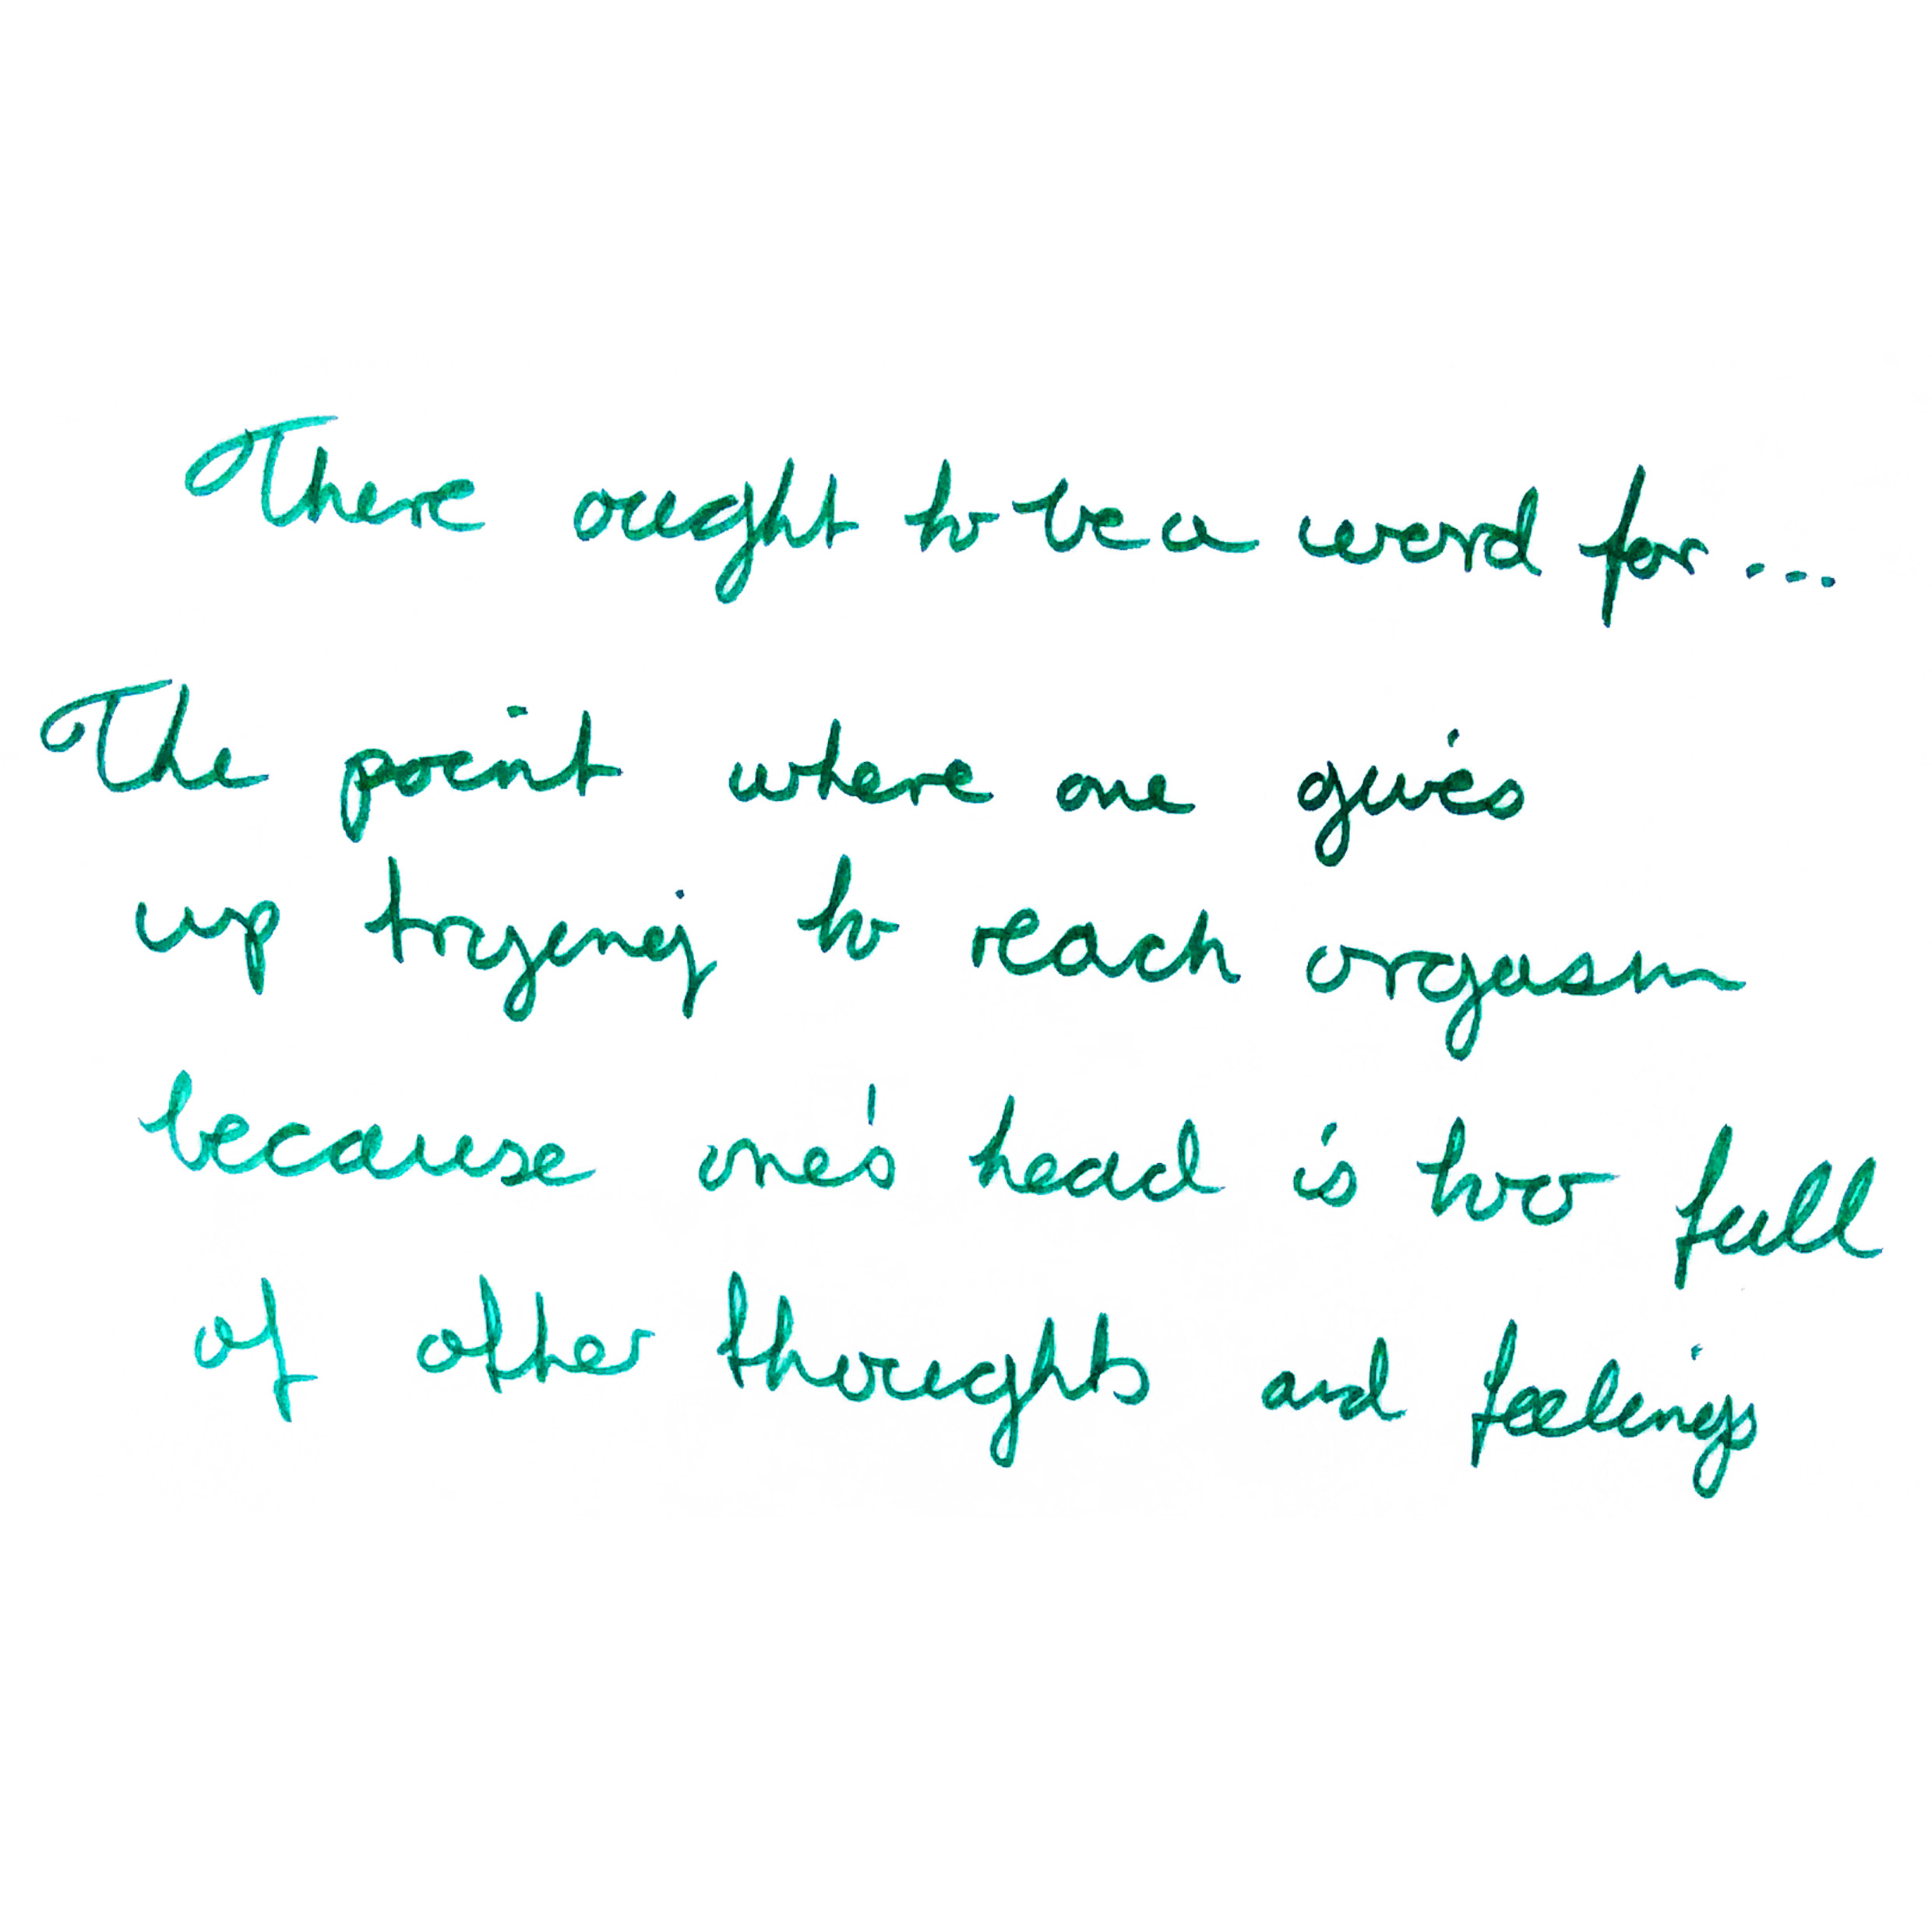 There ought to be a word for....
The point where one gives
up trying to reach orgasm
because one's head is too full
of other thoughts and feelings